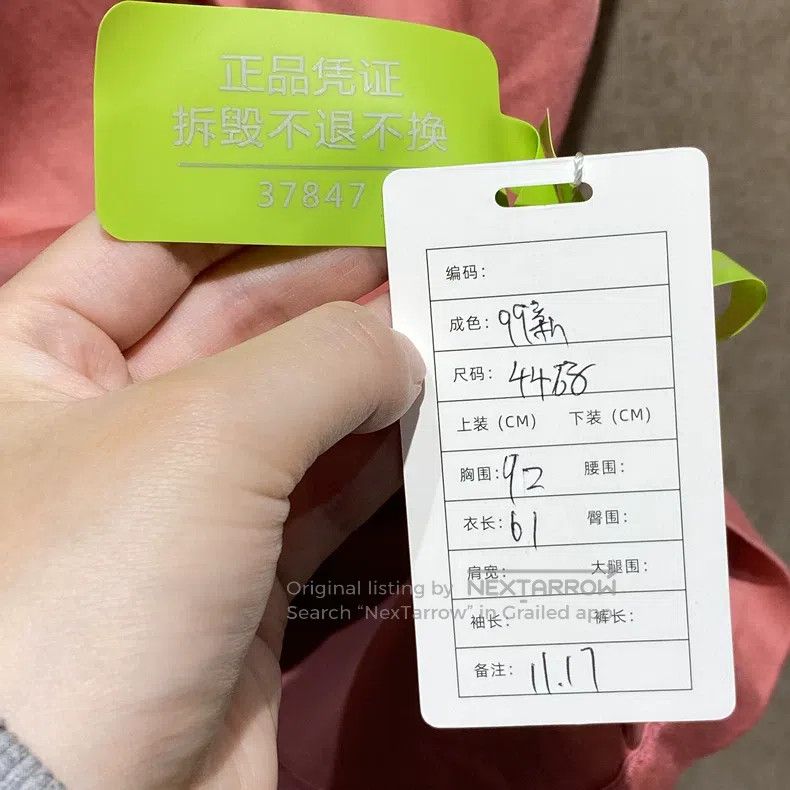 正品凭证
拆毁不退不换
37847
编码：
成色：99新
尺码：44码
上装（CM） 下装（CM）
胸围：92 腰围：
衣长：61 臀围：
肩宽： 大腿围：
袖长： 裤长：
备注：11.17
Original listing by NEXTARROW
Search “NexTarrow” in Grailed app